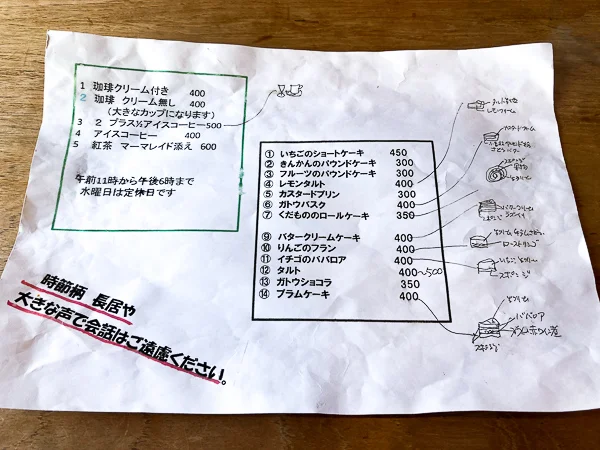 1 珈琲クリーム付き 400
2 珈琲 クリーム無し 400
(大きなカップになります)
3 2 プラス½アイスコーヒー500
4 アイスコーヒー 400
5 紅茶 マーマレイド添え 600
午前11時から午後6時まで
水曜日は定休日です
時節柄 長居や
大きな声で会話はご遠慮ください。
① いちごのショートケーキ 450
② きんかんのパウンドケーキ 300
③ フルーツのパウンドケーキ 300
④ レモンタルト 400
⑤ カスタードプリン 300
⑥ ガトウバスク 400
⑦ くだもののロールケーキ 350
⑨ バタークリームケーキ 400
⑩ りんごのフラン 400
⑪ イチゴのババロア 400
⑫ タルト 400〜500
⑬ ガトウショコラ 350
⑭ プラムケーキ 400
スポンジ
バタークリーム
スポンジ
ババロア
スポンジ